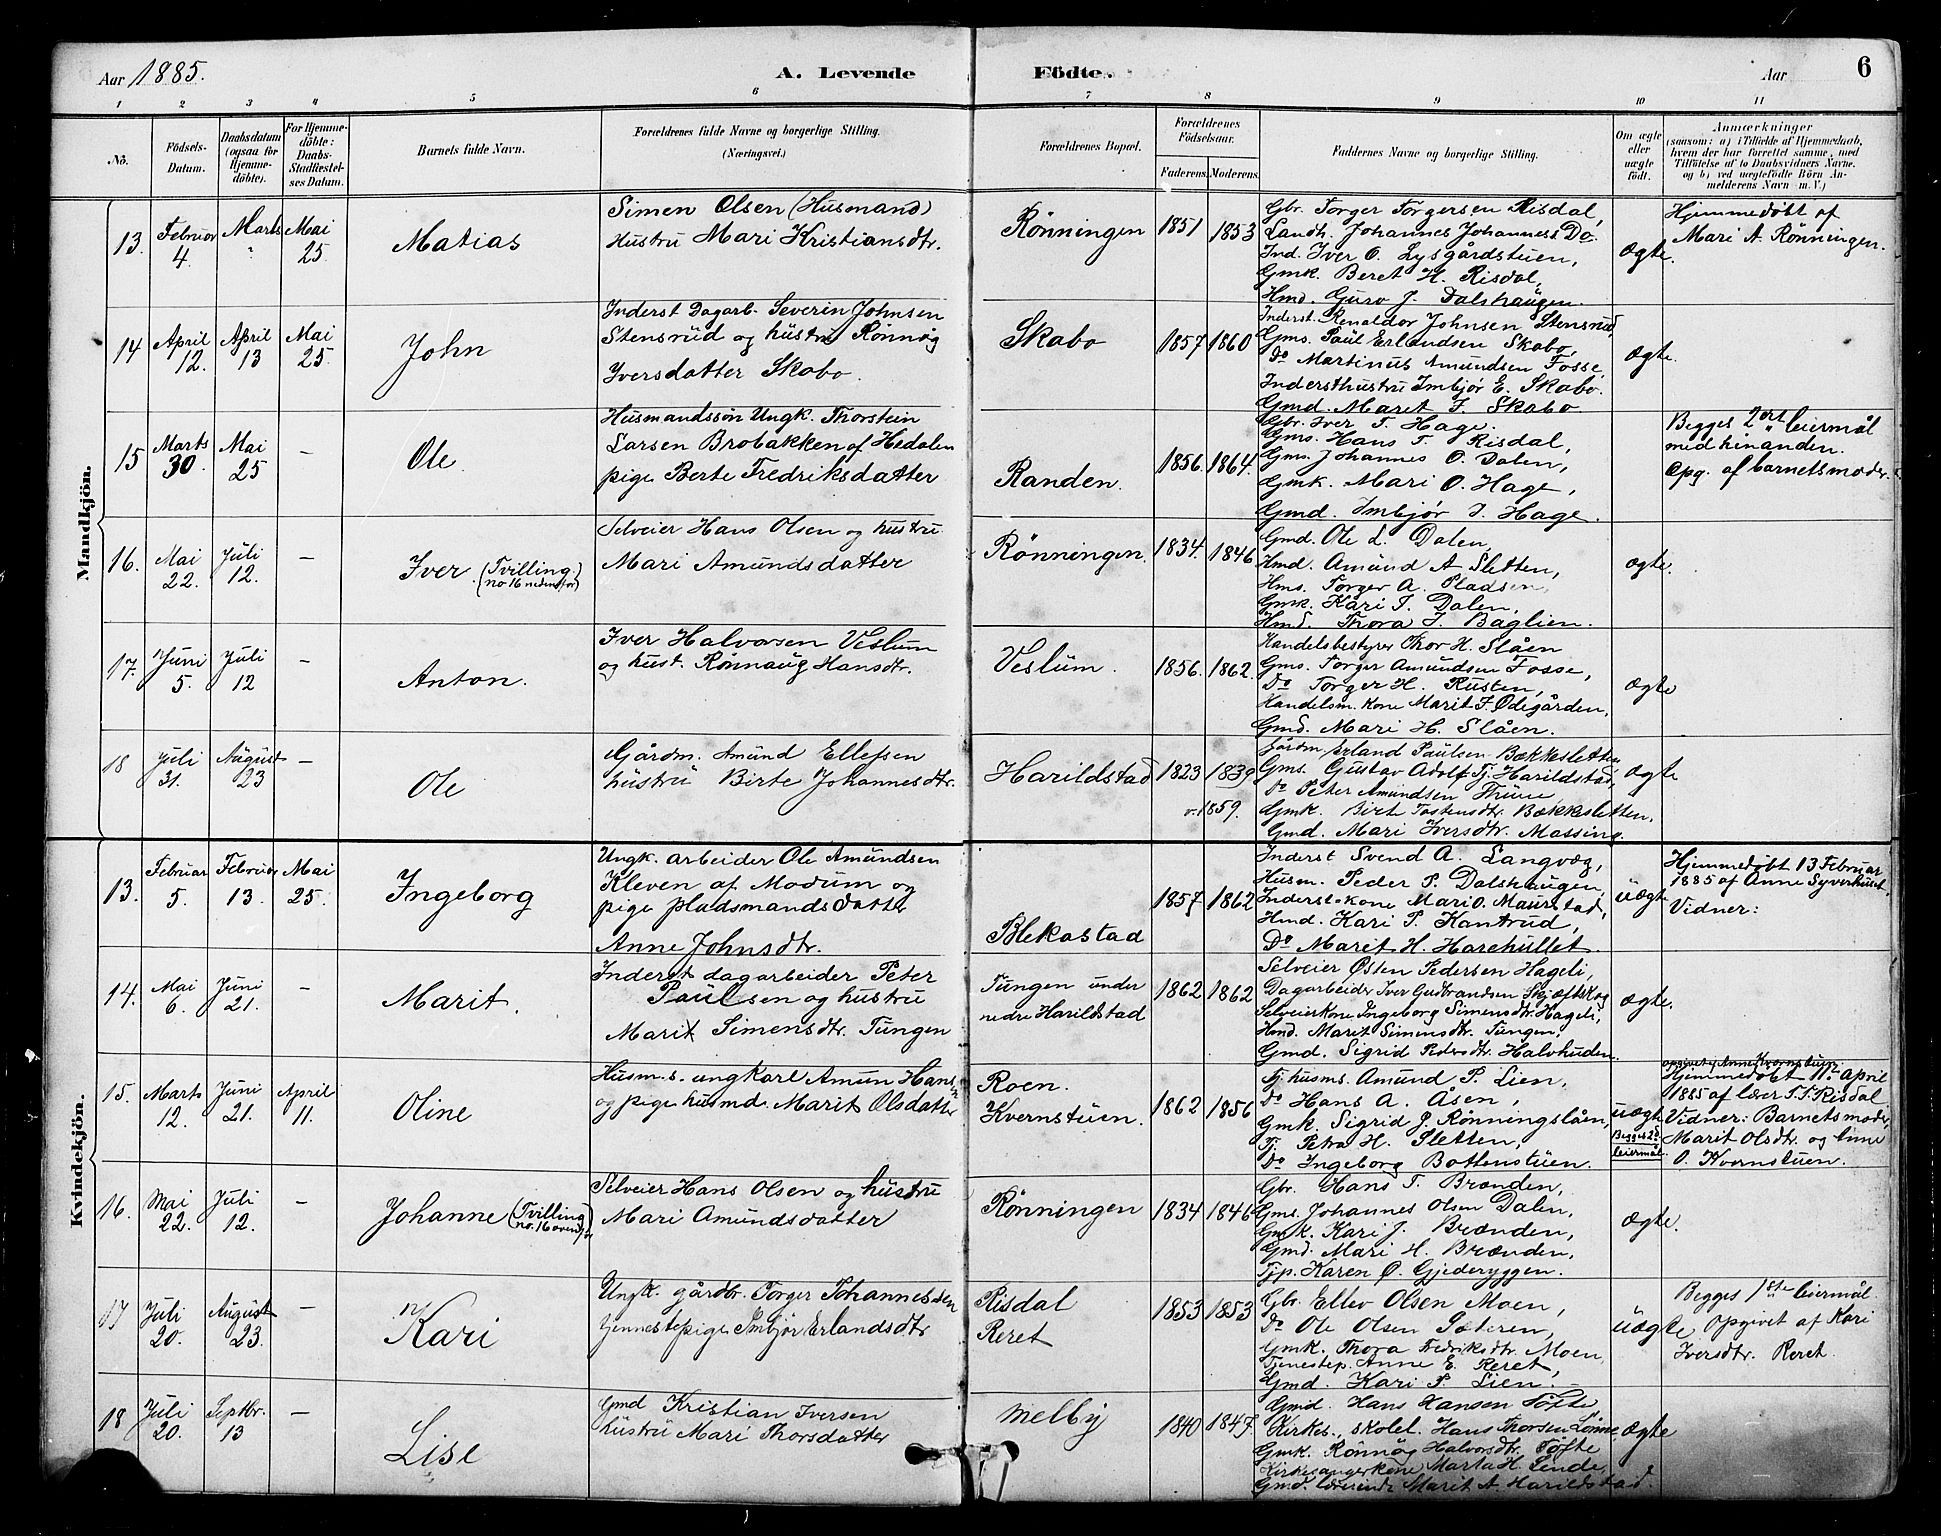 Aar 1885.
A. Levende Födte.
Aar
6
1 2 3 4 5 6 7 8 9 10 11
No.
Födsels-Datum.
Daabsdatum (ogsaa for Hjemme-döbte).
For Hjemme-döbte: Daabs-Stadfæstel-ses Datum.
Barnets fulde Navn.
Forældrenes fulde Navne og borgerlige Stilling. (Næringsvei.)
Forældrenes Bopæl.
Forældrenes Födselsaar.
Faderens. Moderens.
Faddernes Navne og borgerlige Stilling.
Om ægte eller uægte födt.
Anmærkninger
(saasom: a) i Tilfælde af Hjemmedaab, hvem der har forrettet samme, med Tilföielse af to Daabsvidners Navne. og b) ved uægtefödte Börn An-melderens Navn m. V.)
Mandkjön.
13.
Februar 4.
Marts "
Mai 25.
Matias
Simen Olsen (Husmand)
Hustru Mari Kristiansdtr.
Rønningen
1851
1853
Gbr. Torger Torgersen Risdal,
Landh. Johannes Johanness Do.
Ind. Iver O. Lysgårdstuen,
Gmk. Beret H. Risdal,
Hmd. Guro J. Dalshaugen.
Ægte.
Hjemmedøbt af
Mari A. Rønningen.
14
April 12.
April 13
Mai 25.
John
Inderst Dagarb. Severin Johnsen
Stensrud og hustru Rønnøg
Iversdatter Skabo.
Skabo
1857
1860
Inderst. Renaldor Johnsen Stensrud,
Gms. Paul Erlandsen Skabo,
Do Martinus Amundsen Fosse,
Indersthustru Imbjør E. Skabo.
Gmd. Maret I. Skabo
Ægte.
15
Marts 30.
Mai 25
—
Ole.
Husmandssøn Ungk. Thorstein
Larsen Brobakken af Hedalen
pige Berte Fredriksdatter
Randen.
1856.
1864.
Gbr. Iver T. Hage.
Gms. Hans T. Risdal,
Gms. Johannes O. Dalen,
Gmk. Mari O. Hage,
Gmd. Imbjør I. Hage.
Begges 2det leiermål
med hinanden.
Opg. af barnets moder.
16.
Mai 22.
Juli 12.
—
Iver (Tvilling no 16 nedenfor)
Selveier Hans Olsen og hustru
Mari Amundsdatter
Rønningen.
1834.
1846
Gmd. Ole L. Dalen,
Hmd. Amund A Sletten,
Hms. Torger A. Pladsen,
Gmk. Kari T. Dalen,
Hmd. Thora I. Baglien.
Ægte.
17.
Juni 5.
Juli 12
—
Anton.
Iver Halvorsen Veslum
og hust. Rønnaug Hansdtr.
Veslum.
1856.
1862.
Handelsbestyrer Thor H. Slåen
Gms. Torger Amundsen Fosse,
Do Torger H. Rusten,
Handelsm. kone Marit F. Ødegården,
Gmd. Mari H. Slåen.
Ægte
18
Juli 31.
August 23
—
Ole
Gårdm. Amund Ellefsen
hustru Birte Johannesdtr.
Harildstad
1823
1839
1859.
Gårdm. Erland Paulsen Bækkesletten
Gms. Gustav Adolf Tj. Harildstad,
Do Peter Amundsen Thune
Gmk. Birte Tostensdtr. Bækkesletten,
Gmd. Mari Iversdtr. Massing.
Ægte
Kvindekjön.
13.
Februar 5.
Februar 13.
Mai 25.
Ingeborg
Ungk. arbeider Ole Amundsen
Kleven af Modum og
pige pladsmandsdatter
Anne Johnsdtr.
Blekastad
1857
1862
Inderst Svend A. Langvæg,
Husm. Peder P. Dalshaugen,
Inderstkone Mari O. Maurstad,
Hmd. Kari P. Kantrud,
Do Marit H. Harehullet.
uægte
Hjemmedøbt 13 Februar
1885 af Anne Syverhuset.
Vidner:
14.
Mai 6.
Juni 21.
—
Marit.
Inderst dagarbeider Peter
Paulsen og hustru
Marit Simensdtr. Tungen
Tungen under
nedre Harildstad
1862
1862
Selveier Østen Pedersen Hageli,
Dagarbeider Iver Gudbrandsen Skjæftskog
Selveierkone Ingeborg Simensdtr. Hageli,
Hmd. Marit Simensdtr. Tungen,
Gmd. Sigrid Pedersdtr. Halvhuden.
Ægte.
15.
Marts 12.
Juni 21.
April 11.
Oline
Husm.s. ungkarl Amun Hans
og pige husmd. Marit Olsdatter
Roen.
Kvernstuen.
1862
1856
Tj. husms. Amund P. Lien,
Do Hans A. Åsen,
Gmk. Sigrid J. Rønningslåen,
Tj. Petra H. Sletten,
Do Ingeborg Bottenstuen.
uægte
Begges 2d leiermål.
Hjemmedøbt 11te April
1885 af lærer T. T. Risdal
Vidner: Barnets moder
Marit Olsdtr. og
O. Kvernstuen.
16.
Mai 22.
Juli 12.
—
Johanne (Tvilling no. 16 ovenfor)
Selveier Hans Olsen og hustru
Mari Amundsdatter
Rønningen
1834
1846
Gbr. Hans T. Brænden,
Gms. Johannes Olsen Dalen,
Gmk. Kari J. Brænden,
Gmd. Mari H. Brænden,
Tjp. Karen Ø. Gjederyggen.
Ægte.
17
Juli 20.
August 23.
—
Kari
Ungk. gårdbr. Torger Johannessen
tjenestepige Imbjør Erlandsdtr
Risdal
Reret
1853
1853
Gbr. Ellev Olsen Moen,
Do Ole Olsen Sæteren,
Gmk. Thora Fredriksdtr. Moen,
Tjenestep. Anne E. Reret,
Gmd. Kari P. Lien.
uægte
Begges 1ste leiermål.
Opgivet af Kari
Iversdtr. Reret.
18
Juli 20.
Septbr. 13
—
Lise
Gmd Kristian Iversen
hustru Mari Thorsdatter
Melby
1840
1847.
Gmd. Hans Hansen Tofte
Kirkes., skolel. Hans Thorsen Lønne
Gmk. Rønnøg Halvorsdtr. Tofte
Kirkesangerkone Marta H. Sende,
Gmd. lærerinde Marit A. Harildstad.
Ægte